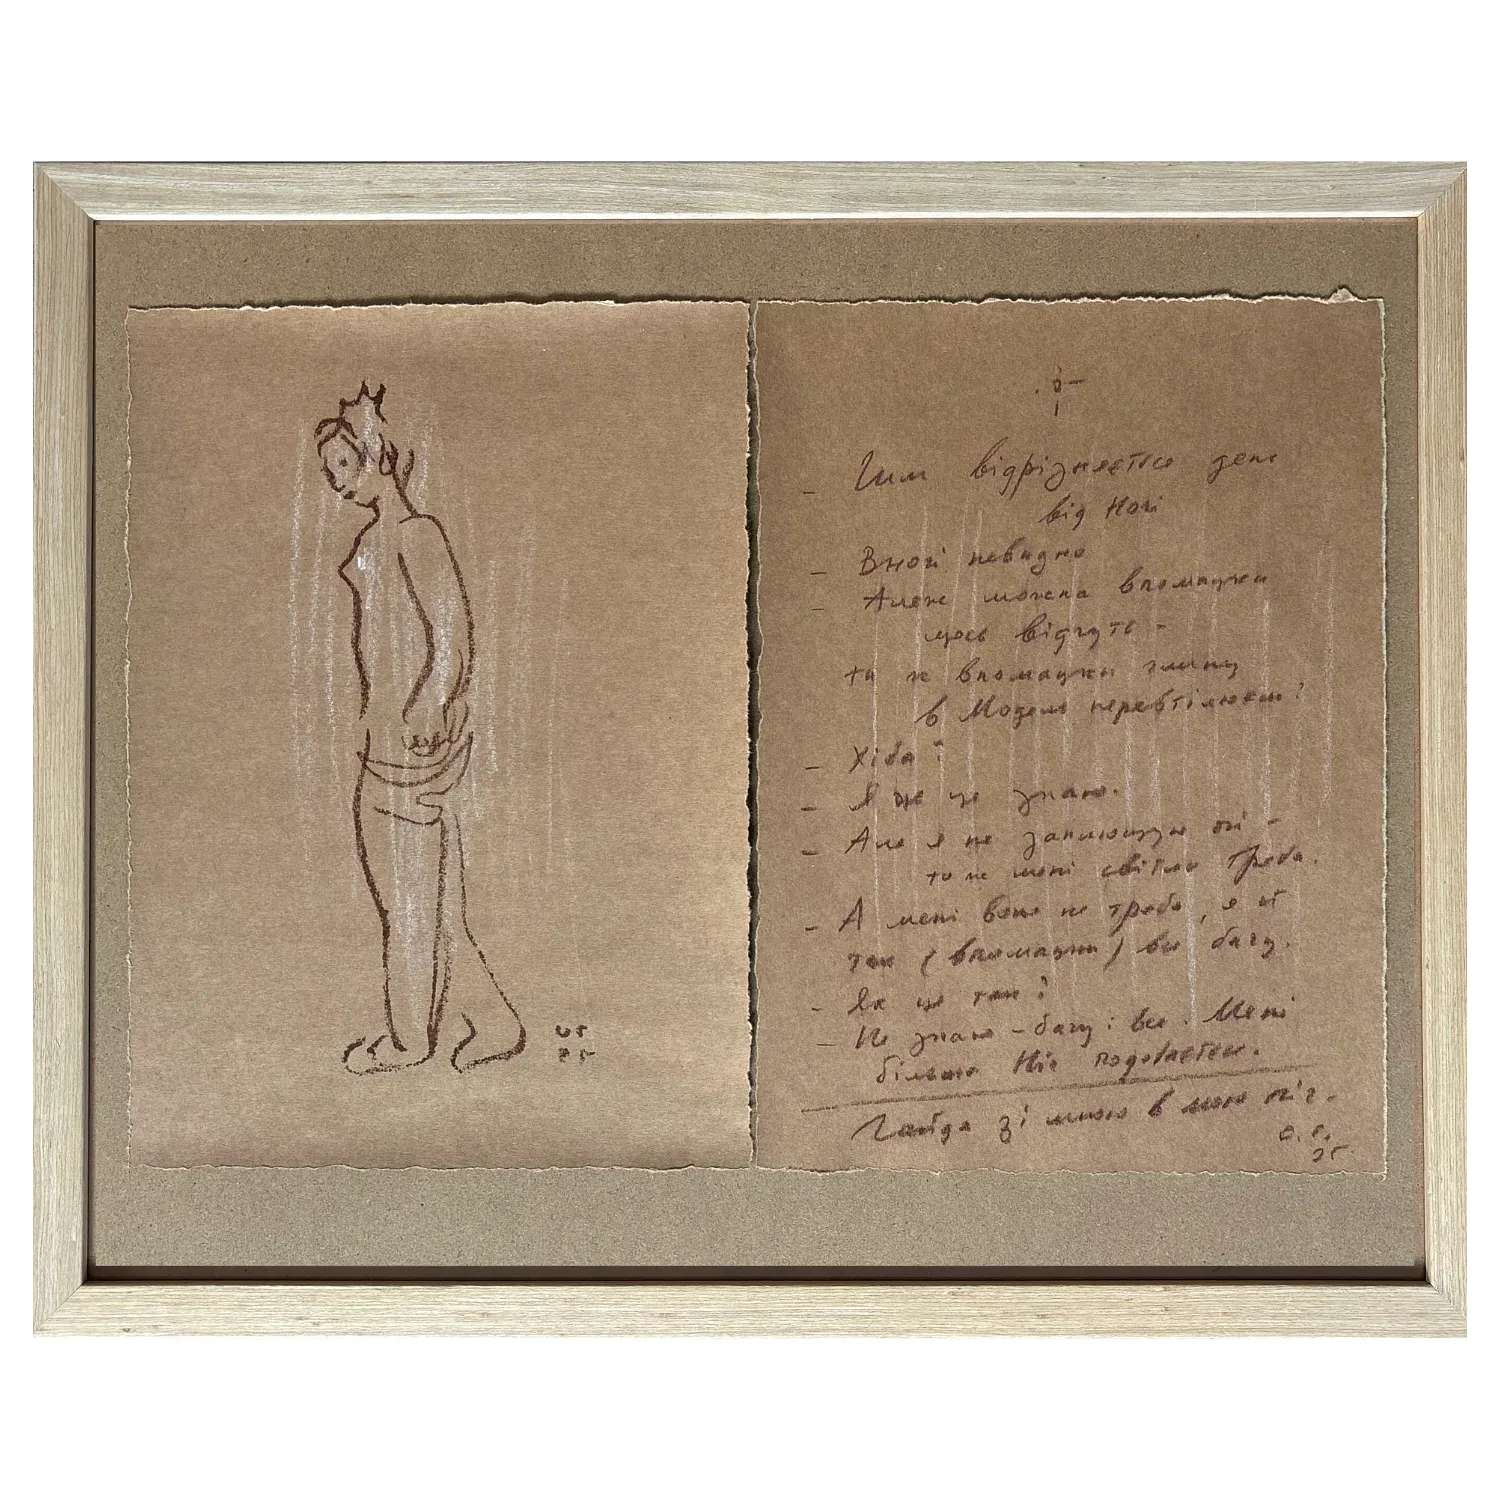 - Чим відрізняється день
від Ночі
- Вночі невидно
- Алеж можна впомацки
щось відчуть -
ти ж впомацки глину
в Модель перевтілюєш?
- Хіба?
- Я це знаю.
- Але я не заплющую очі -
то ж мені світло треба.
- А мені воно не треба, я й
так (впомацки) все бачу.
- Як це так?
- Не знаю - бачу і все. Мені
більше Ніч подобається.
Гайда зі мною в мою ніч.
О. Г.
25